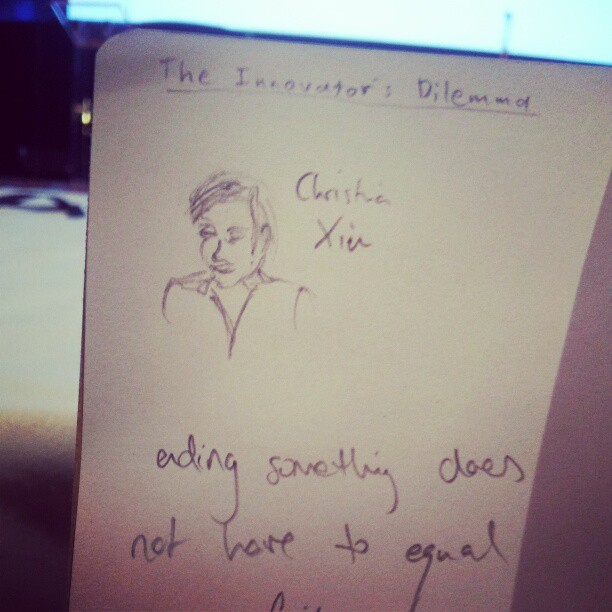 The Innovator's Dilemma
Christina
Xin
ending something does
not have to equal